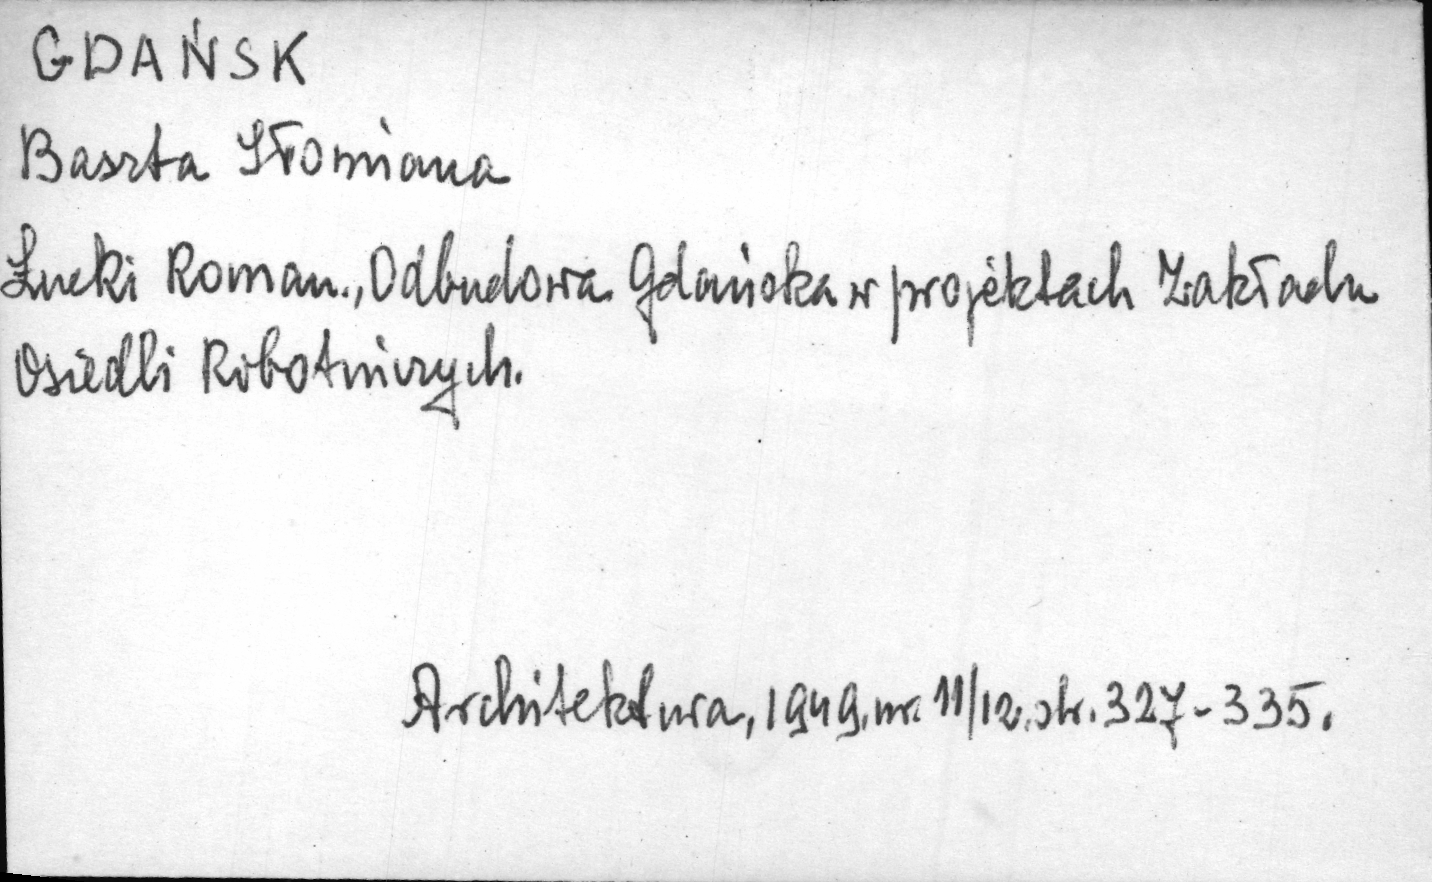 GDAŃSK
Baszta Słomiana
Łucki Roman., Odbudowa Gdańska w projektach Zakładu
Osiedli Robotniczych.
Architektura, 1949. nr. 11/12. str. 327-335.